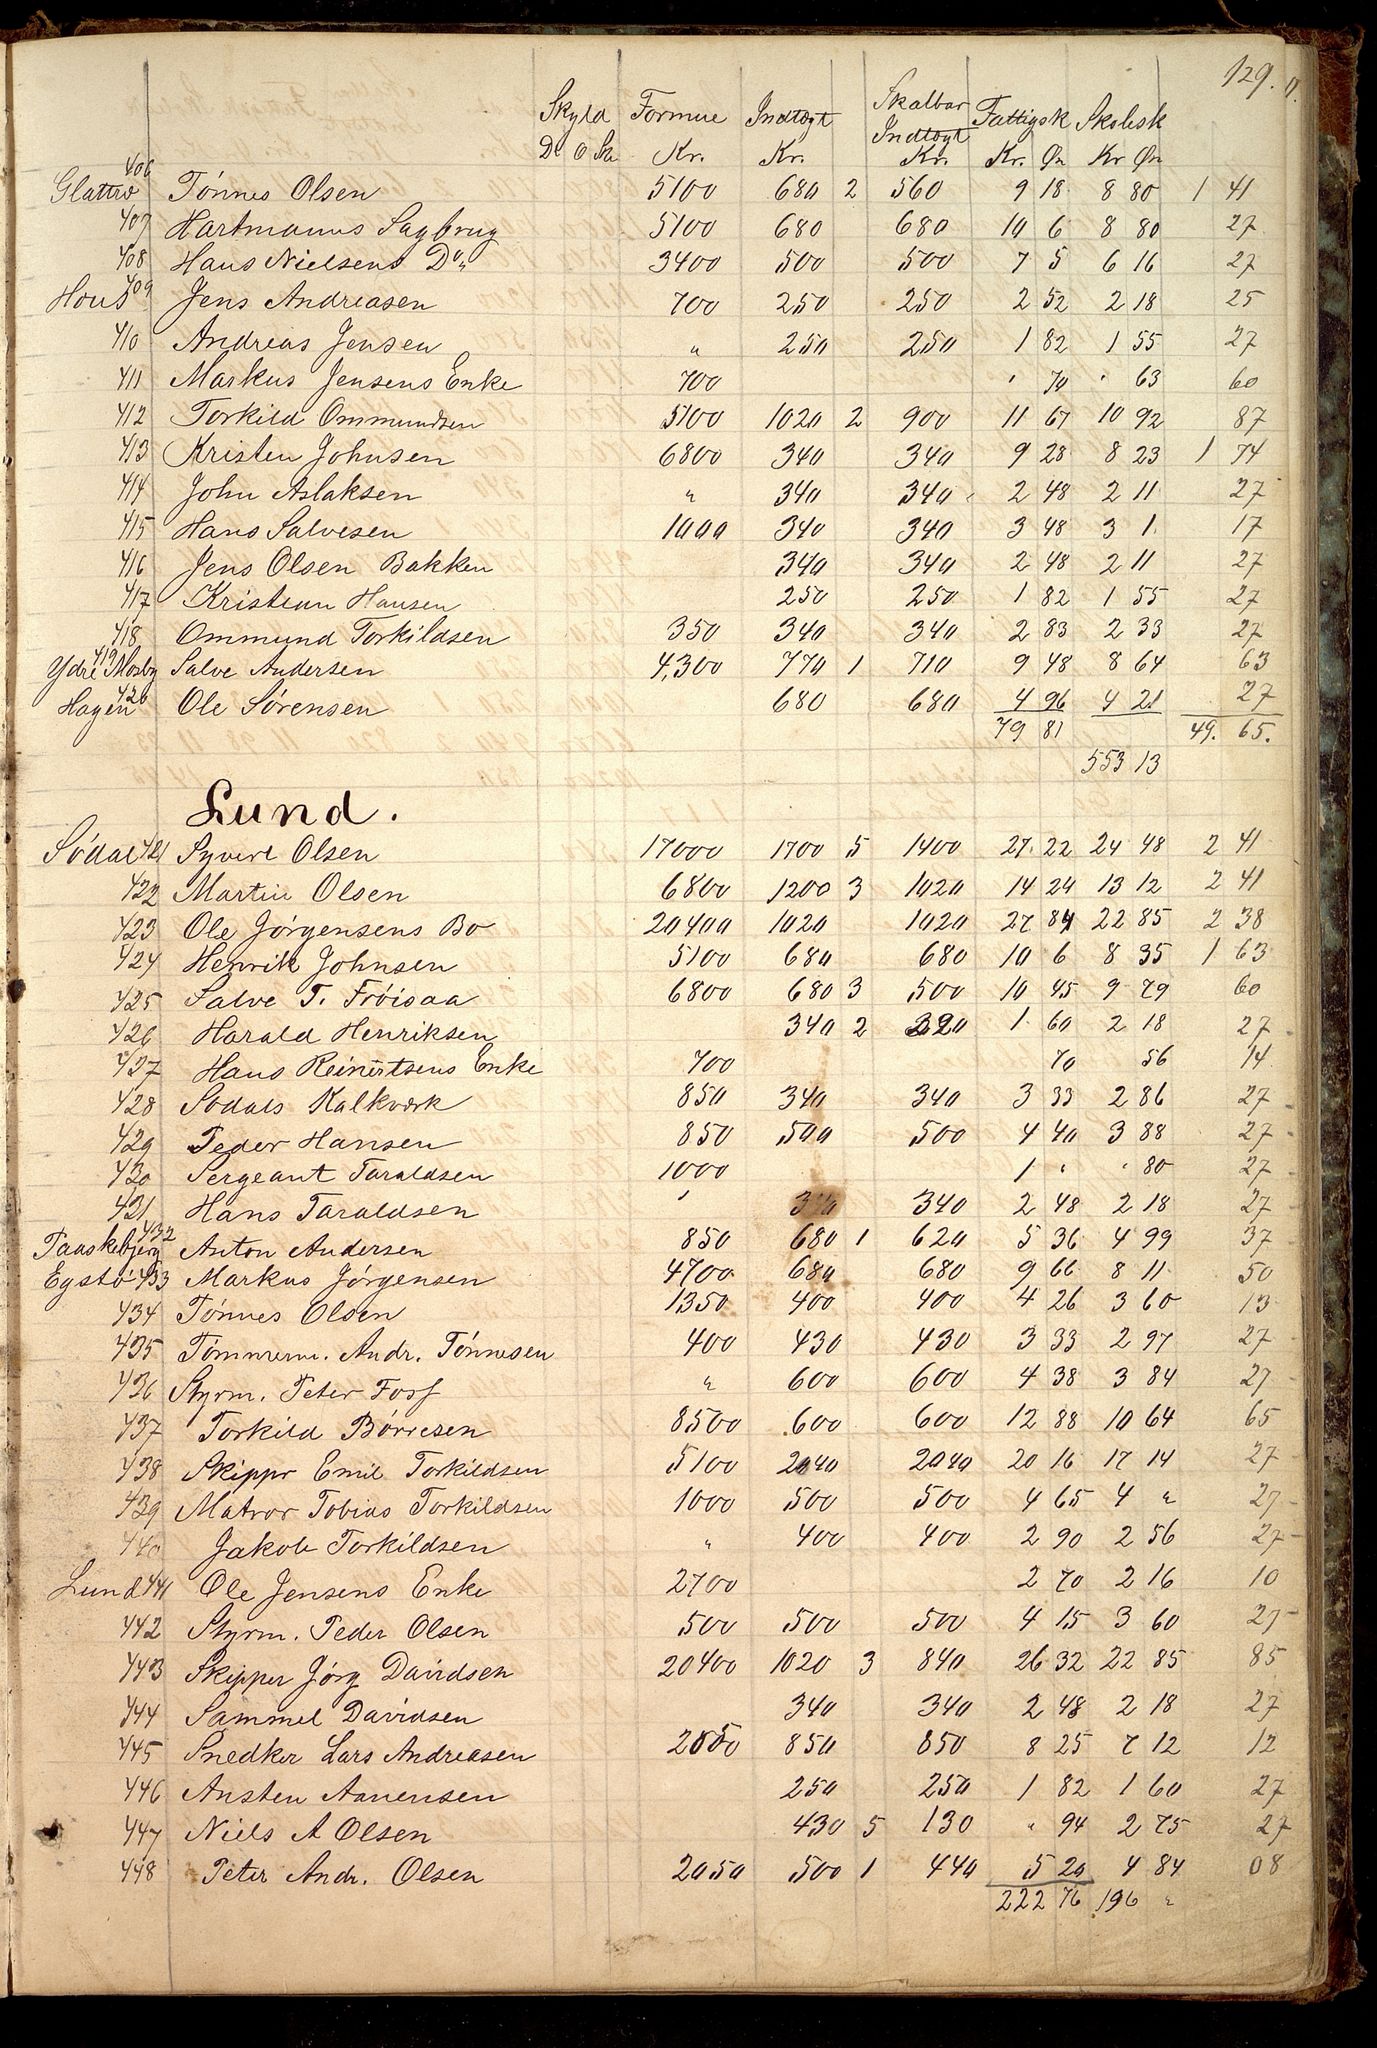 129.
Skyld Formue Indtægt Skatbar Indtægt Fattigsk Skolesk
D O Sk Kr. Kr. Kr. Kr. Ør Kr Ør
406 Tönnes Olsen 5100 680 2 560 9 18 8 80 1 41
407 Hartmanns Sagbrug 5100 680 680 10 6 8 80 27
408 Hans Nielsens Do 3400 500 500 7 5 6 16 27
409 Jens Andreasen 700 250 250 2 52 2 18 25
410 Andreas Jensen " 250 250 1 82 1 55 27
411 Markus Jensens Enke 700 " 70 " 63 60
412 Torkild Ommundsen 5100 1020 2 900 11 67 10 92 87
413 Kristen Johnsen 6800 340 340 9 28 8 23 1 74
414 John Aslaksen " 340 340 2 48 2 11 27
415 Hans Salvesen 1000 340 340 3 48 3 1 17
416 Jens Olsen Bakken 340 340 2 48 2 11 27
417 Kristian Hansen 250 250 1 82 1 55 27
418 Ommund Torkildsen 350 340 340 2 83 2 33 27
Ydre Mosby 419 Salve Andersen 4300 770 1 710 9 48 8 64 63
Hagen 420 Ole Sørensen 680 680 4 96 4 21 27
79 81 49. 65.
553 13
Lund.
Södal 421 Syvert Olsen 17000 1700 5 1400 27 22 24 48 2 41
422 Martin Olsen 6800 1200 3 1020 14 24 13 12 2 41
423 Ole Jörgensens Bo 20400 1020 1020 27 84 22 85 2 38
424 Henrik Johnsen 5100 680 680 10 6 8 35 1 63
425 Salve T. Fröisaa 6800 680 3 500 10 45 9 79 60
426 Harald Henriksen 340 2 220 1 60 2 18 27
427 Hans Reinertsens Enke 700 70 56 14
428 Södals Kalkværk 850 340 340 3 33 2 86 27
429 Peder Hansen 850 500 500 4 40 3 88 27
430 Sergeant Taraldsen 1000 1 " " 80 27
431 Hans Taraldsen " 340 340 2 48 2 18 27
432 Anton Andersen 850 680 1 620 5 36 4 99 37
Egstö 433 Markus Jörgensen 4700 680 680 9 66 8 11 50
434 Tönnes Olsen 1350 400 400 4 26 3 60 13
435 Tömmerm. Andr. Tönnesen 400 430 430 3 33 2 97 27
436 Styrm. Peter Foss " 600 600 4 38 3 84 27
437 Torkild Börresen 8500 600 600 12 88 10 64 65
438 Skippr Emil Torkildsen 5100 2040 2040 20 16 17 14 27
439 Matros Tobias Torkildsen 1000 500 500 4 65 4 " 27
440 Jakob Torkildsen " 400 400 2 90 2 56 27
Lund 441 Ole Jensens Enke 2700 2 70 2 16 10
442 Styrm. Peder Olsen 500 500 500 4 15 3 60 27
443 Skipper Jörg Davidsen 20400 1020 3 840 26 32 22 85 85
444 Sammel Davidsen 340 340 2 48 2 18 27
445 Snedker Lars Andreasen 2050 850 850 8 25 7 12 12
446 Ansten Aanensen 250 250 1 82 1 60 27
447 Niels A Olsen 430 5 130 " 94 2 75 27
448 Peter Andr. Olsen 2050 500 1 440 5 20 4 84 08
222 76 196 "